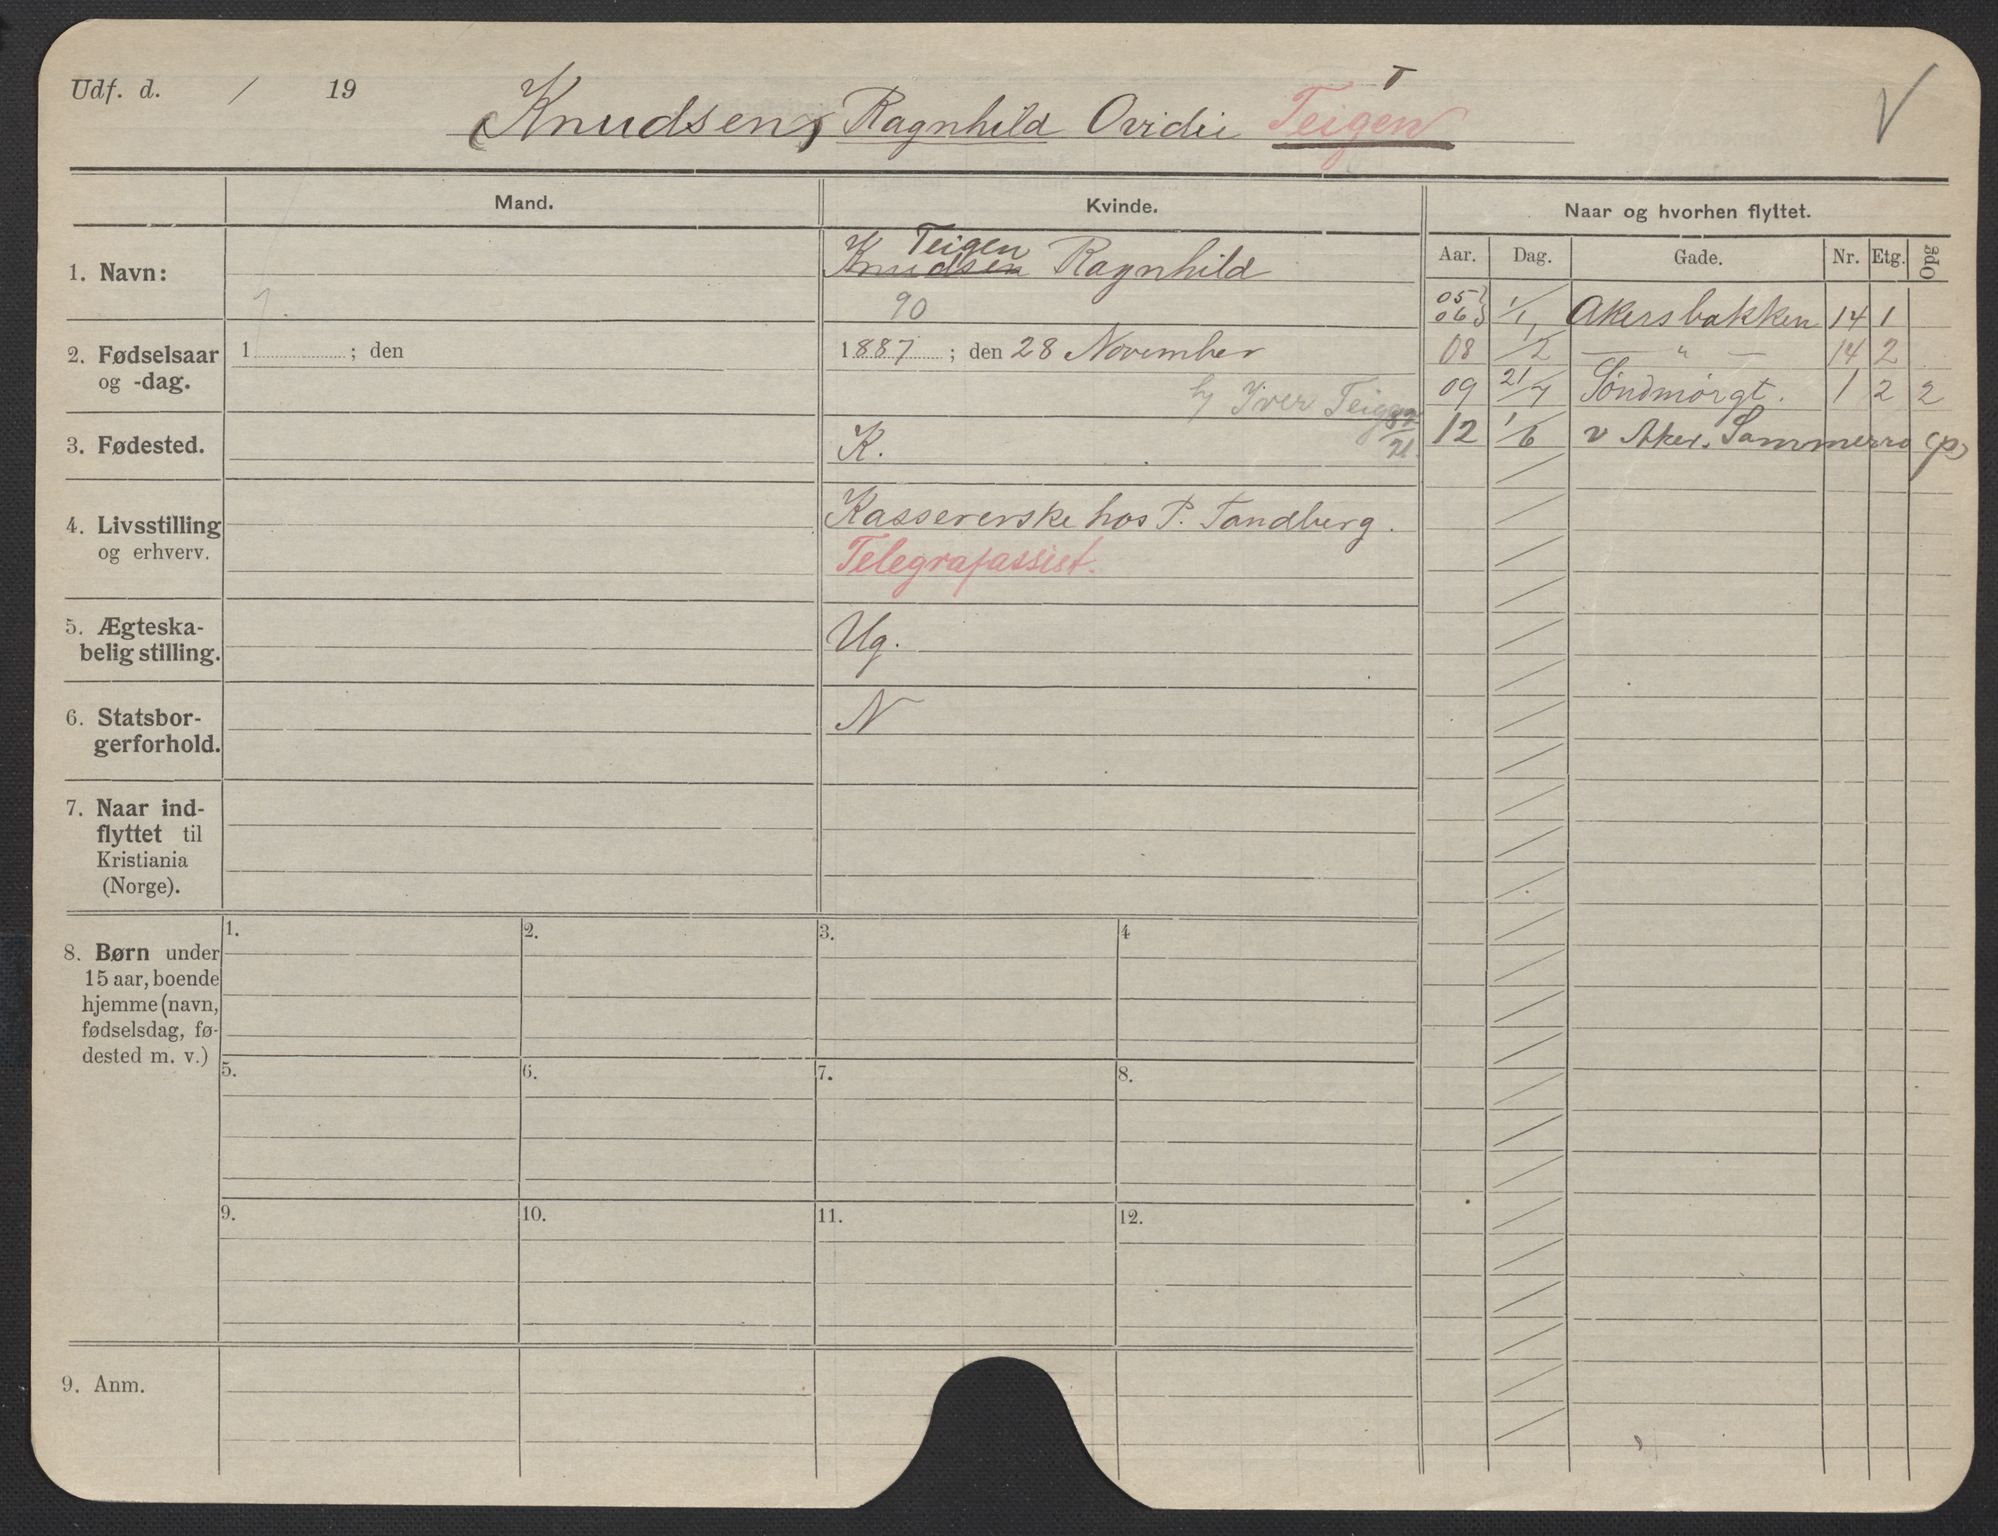 Udf. d. / 19
(Knudsen) Ragnhild Ovidie Teigen
Mand.
Kvinde.
Naar og hvorhen flyttet.
Aar. Dag. Gade. Nr. Etg. Opg
1. Navn:
Teigen
Knudsen Ragnhild
90
05 } 1/1 Akersbakken 14 1
06 }
08 1/2 — " — 14 2
09 21/4 Søndmørgt. 1 2 2
12 1/6 v Aker. Sommerro (p)
2. Fødselsaar
og -dag.
1 ; den
1887 ; den 28 November
Iver Teigen
3. Fødested.
K.
4. Livsstilling
og erhverv.
Kassererske hos P. Tandberg.
Telegrafassist.
5. Ægteska-
belig stilling.
Ug.
6. Statsbor-
gerforhold.
N
7. Naar ind-
flyttet til
Kristiania
(Norge).
8. Børn under
15 aar, boende
hjemme (navn,
fødselsdag, fø-
dested m. v.)
1. 2. 3. 4
5. 6. 7. 8.
9. 10. 11. 12.
9. Anm.